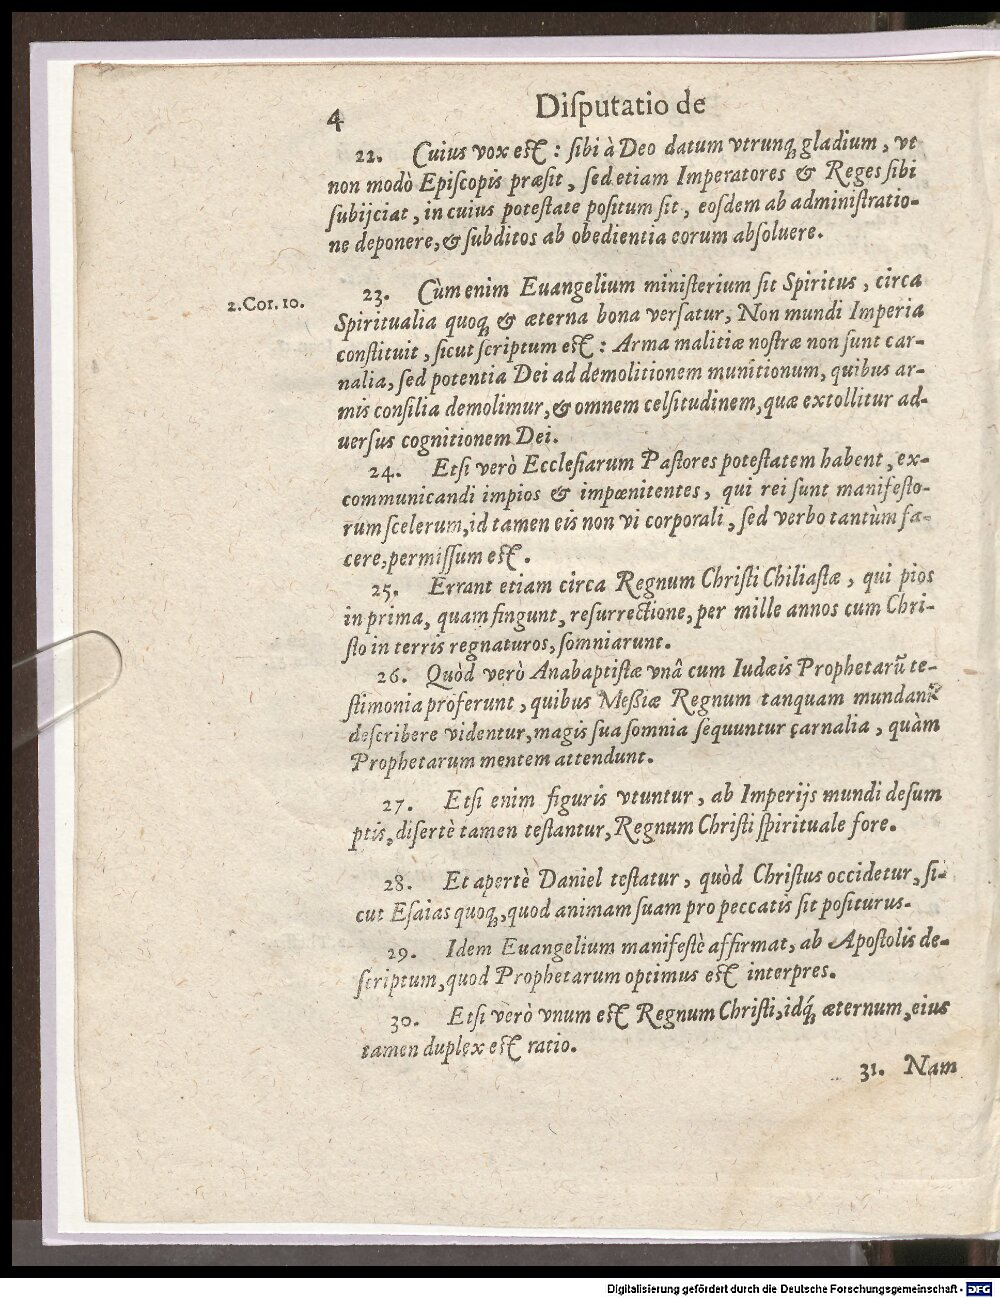 4 Diſputatio de
22. Cuius vox eſt: ſibi à Deo datum vtrunq; gladium, vt
non modò Epiſcopis præſit, ſed etiam Imperatores & Reges ſibi
ſubijciat, in cuius poteſtate poſitum ſit, eoſdem ab adminiſtratio-
ne deponere, & ſubditos ab obedientia eorum abſoluere.
2. Cor. 10.
23. Cùm enim Euangelium miniſterium ſit Spiritus, circa
Spiritualia quoq; & æterna bona verſatur, Non mundi Imperia
conſtituit, ſicut ſcriptum eſt: Arma malitiæ noſtræ non ſunt car-
nalia, ſed potentia Dei ad demolitionem munitionum, quibus ar-
mis conſilia demolimur, & omnem celſitudinem, quæ extollitur ad-
uerſus cognitionem Dei.
24. Etſi verò Eccleſiarum Paſtores poteſtatem habent, ex-
communicandi impios & impœnitentes, qui rei ſunt manifeſto-
rum ſcelerum, id tamen eis non vi corporali, ſed verbo tantùm fa-
cere, permiſſum eſt.
25. Errant etiam circa Regnum Chriſti Chiliaſtæ, qui pios
in prima, quam fingunt, reſurrectione, per mille annos cum Chri-
ſto in terris regnaturos, ſomniarunt.
26. Quòd verò Anabaptiſtæ vnâ cum Iudæis Prophetarũ te-
ſtimonia proferunt, quibus Meßiæ Regnum tanquam mundanũ
deſcribere videntur, magis ſua ſomnia ſequuntur carnalia, quàm
Prophetarum mentem attendunt.
27. Etſi enim figuris vtuntur, ab Imperijs mundi deſum
ptis, diſertè tamen teſtantur, Regnum Chriſti ſpirituale fore.
28. Et apertè Daniel teſtatur, quòd Chriſtus occidetur, ſi-
cut Eſaias quoq;, quod animam ſuam pro peccatis ſit poſiturus.
29. Idem Euangelium manifeſtè affirmat, ab Apoſtolis de-
ſcriptum, quod Prophetarum optimus eſt interpres.
30. Etſi verò vnum eſt Regnum Chriſti, idq́; æternum, eius
tamen duplex eſt ratio.
31. Nam
Digitalisierung gefördert durch die Deutsche Forschungsgemeinschaft - DFG